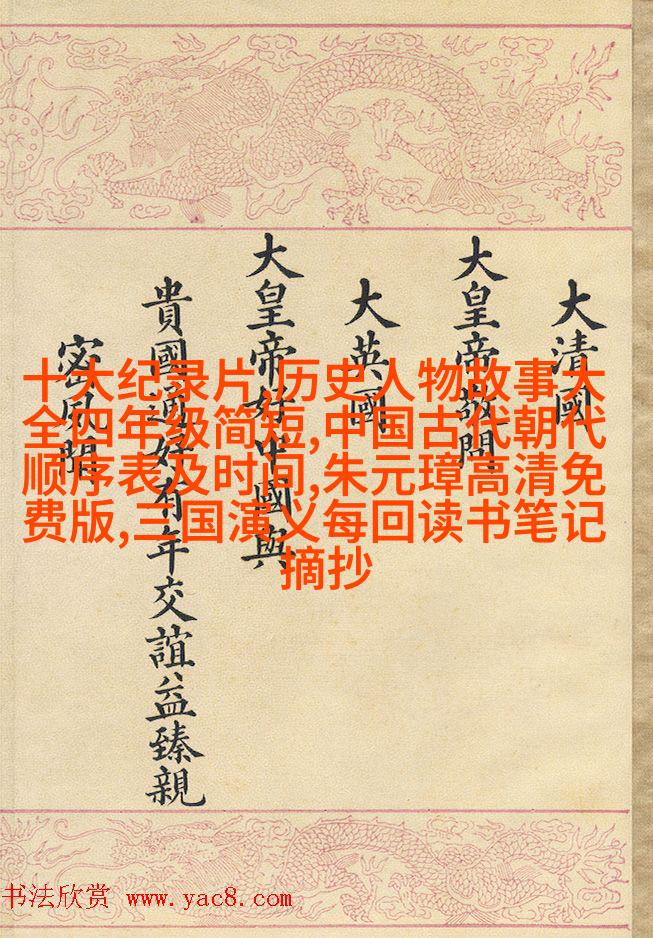 大清國
大皇帝敬問
大英國
大皇帝好中國與
貴國通好有年交誼益臻親
密夙
十大纪录片,历史人物故事大
全四年级简短,中国古代朝代
顺序表及时间,朱元璋高清免
费版,三国演义每回读书笔记
摘抄
书法欣赏 www.yac8.com